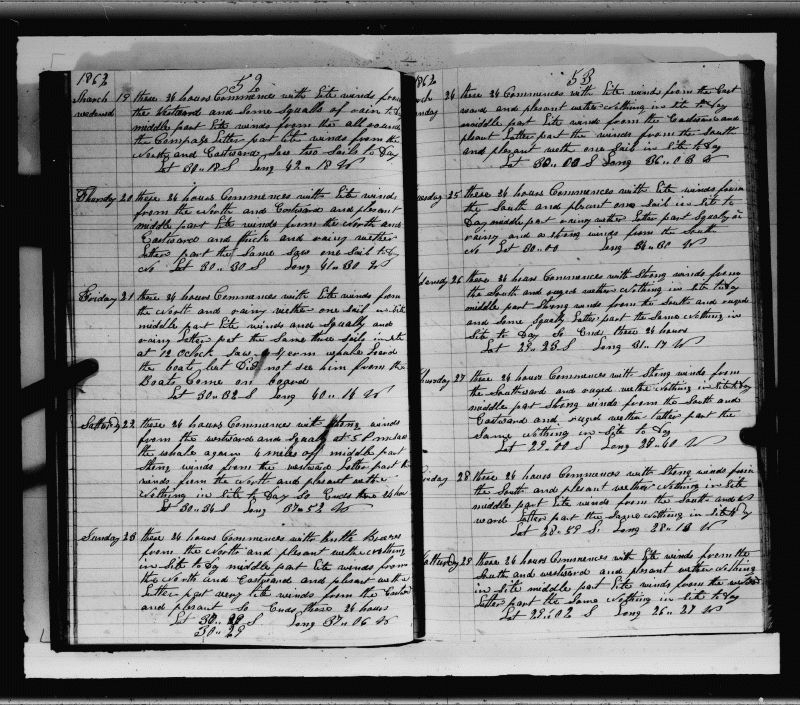 1862
52
March 19 these 24 hours Commence with Lite winds from
wednesd the Westward and Some Squalls of rain to Day
middle part Lite winds from the all round
the Compass Latter part Lite winds from the
North and Eastward Saw two Sails to Day
Lat 30 " 18 S Long 42 " 18 W
Thursday 20 these 24 hours Commences with Lite winds
from the North and Eastward and plesant
middle part Lite winds from the North and
Eastward and thick and rainy wether
Latter part the Same Saw one Sail to Day
Lat 30 " 30 S Long 41 " 30 W
Friday 21 these 24 hours Commences with Lite winds from
the North and rainy wether one Sail in Site
middle part Lite winds and Squaly and
rainy Latter part the Same three Sails in Site
at 12 Oclock Saw a Sperm whale Lowered
the boats but Did not see him from the
Boats Come on board
Lat 30 " 32 S Long 40 " 14 W
Satturdy 22 these 24 hours Commences with Strong winds
from the westward and Squaly at 5 P m Saw
the whale again 4 miles off middle part
Strong winds from the westward Latter part the
winds from the North and plesant wether
Nothing in Site to Day So Ends these 24 hours
Lat 30 " 34 S Long 37 " 52 W
Sunday 23 these 24 hours Commences with
from the North and plesant wether nothing
in Site to Day middle part Lite winds from
the North and Eastward and plesant wether
Latter part very Lite winds from the Eastward
and plesant So Ends these 24 hours
Lat 30 " 29 S Long 37 " 06 W
30 " 29
1862
53
24 these 24 Commences with Lite winds from the East
ward and plesant wether Nothing in Site to Day
middle part Lite winds from the Eastward and
plesant Latter part the winds from the South
and plesant weth one Sail in Site to Day
Lat 30 " 00 S Long 36 " 03 W
25 these 24 hours Commences with Lite winds from
the South and plesant one Sail in Site to
Day middle part rainy wether Latter part Squaly
rainy and a strong winds from the South
Lat 30 " 00 Long 34 " 30 W
26 these 24 hours Commences with Strong winds from
the South and ruged wether Nothing in Site to Day
middle part Strong winds from the South and ruged
and Some Squaly Latter part the Same Nothing in
Site to Day So Ends these 24 hours
Lat 29 " 23 S Long 31 " 17 W
27 these 24 hours Commences with Strong winds from
the Southward and ruged wethe Nothing in Site to Day
middle part Strong winds from the South and
Eastward and ruged wether Latter part the
Same Nothing in Site to Day
Lat 29 " 00 S Long 28 " 40 W
28 these 24 hours Commences with Strong winds from
the South and plesant wether Nothing in Site
middle part Lite winds from the South and
ward Latter part the Same Nothing in Site to Dy
Lat 28 " 59 S. Long 28 " 13 W
Satturdy 29 these 24 hours Commences with Lite winds from the
South and westward and plesant wether Nothing
in Site middle part Lite winds from the westward
Latter part the Same Nothing in Site to Day
Lat 29 " 02 S Long 26 " 27 W